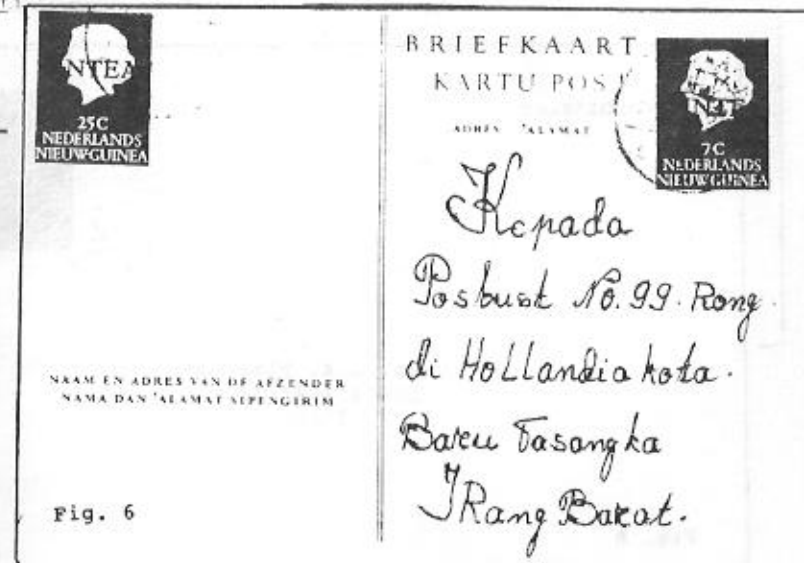 UNTEA
25C
NEDERLANDS
NIEUW-GUINEA
NAAM EN ADRES VAN DE AFZENDER
NAMA DAN 'ALAMAT SEPENGIRIM
Fig. 6
BRIEFKAART
KARTU POS
ADRES 'ALAMAT
7C
NEDERLANDS
NIEUW GUINEA
Kepada
Posbust No. 99. Rong
di HoLLandia kota.
Bareu Tasangka
IRang Barat.